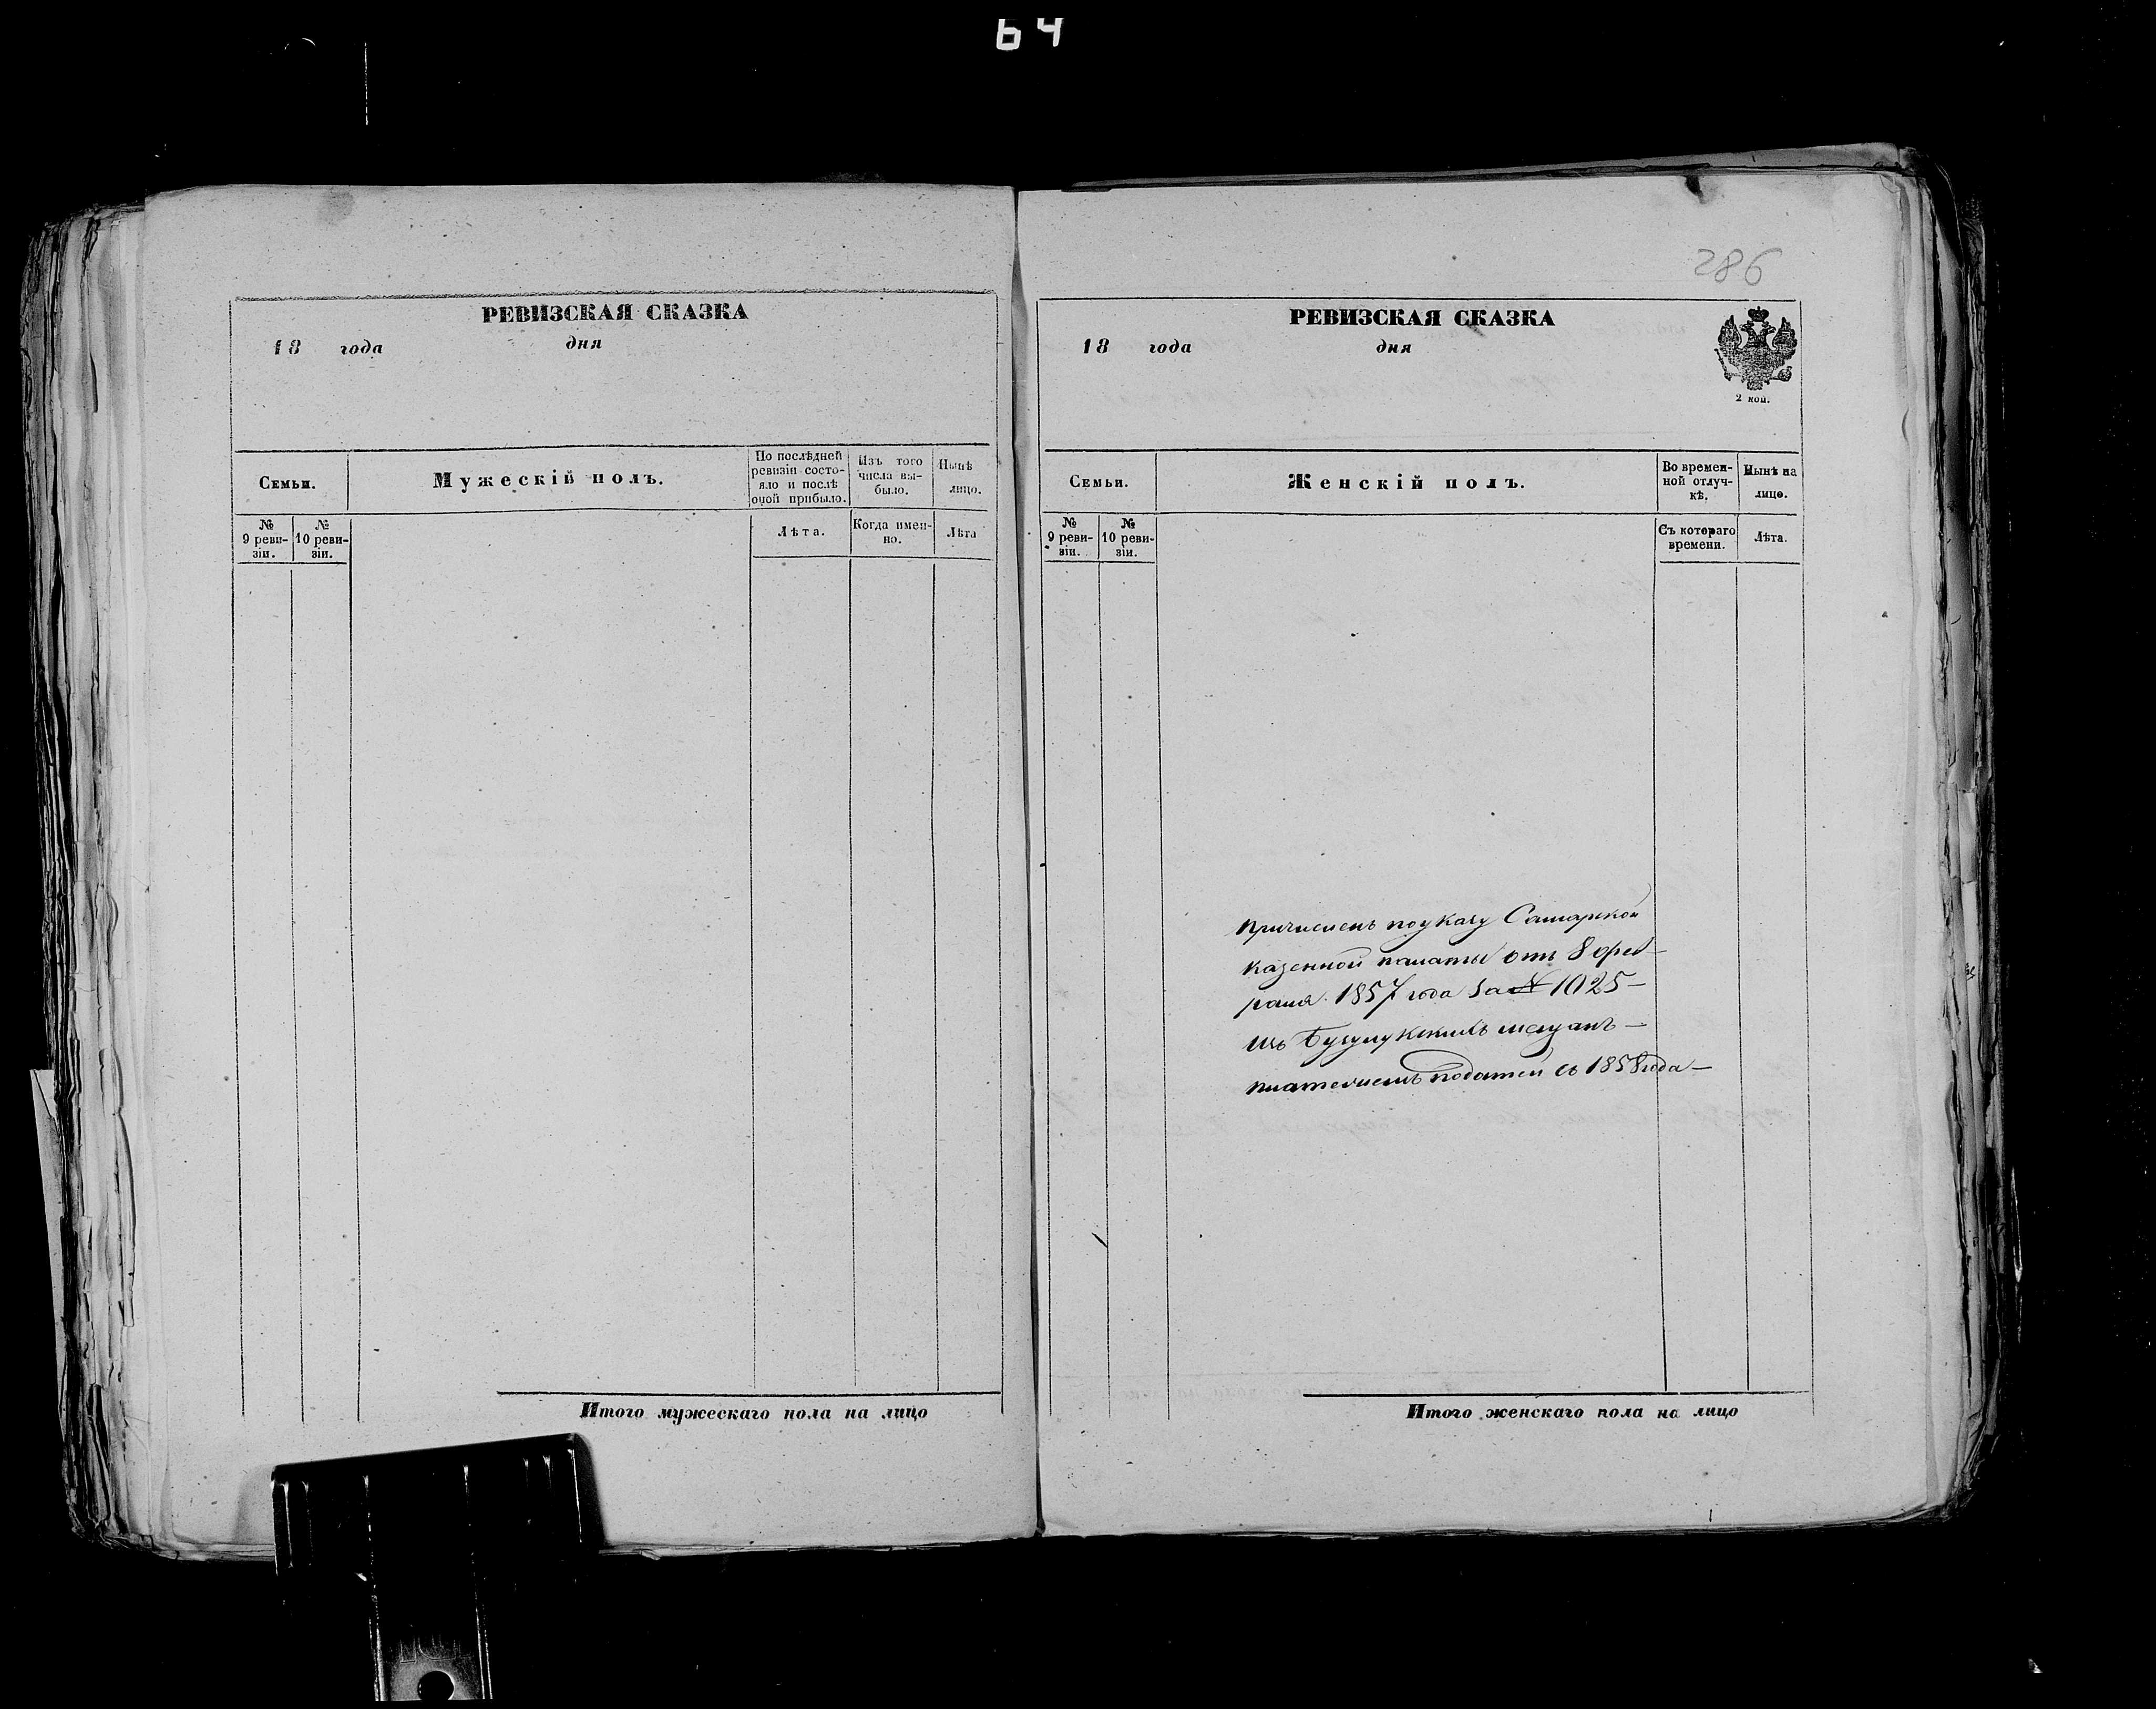 64
РЕВИЗСКАЯ СКАЗКА
18 года дня
Семьи.
Мужескій полъ.
По послѣдней
ревизіи состо-
яло и послѣ
оной прибыло.
Изъ того
числа вы-
было.
Нынѣ
лицо.
№
9 реви-
зіи.
№
10 реви-
зіи.
Лѣта.
Когда имен-
но.
Лѣта
Итого мужескаго пола на лицо
286
РЕВИЗСКАЯ СКАЗКА
18 года дня
2 коп.
Семьи.
Женскій полъ.
Во времен-
ной отлуч-
кѣ.
Нынѣ на
лицо.
№
9 реви-
зіи.
№
10 реви-
зіи.
Съ котораго
времени.
Лѣта.
причисленъ по указу Самарской
казенной палаты отъ 8 фев-
раля 1857 года за № 1025 —
изъ Бузулукскихъ мещанъ —
платежемъ податей съ 1858 года —
Итого женскаго пола на лицо